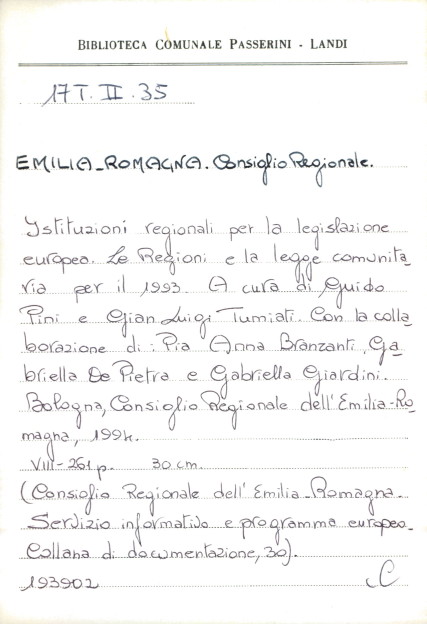 BIBLIOTECA COMUNALE PASSERINI - LANDI
17 T. II. 35
EMILIA-ROMAGNA. Consiglio Regionale.
Istituzioni regionali per la legislazione
europea. Le Regioni e la legge comunita_
ria per il 1993. A cura di Guido
Pini e Gian Luigi Tumiati. Con la colla_
borazione di: Pia Anna Branzanti, Ga_
briella De Pietra e Gabriella Giardini.
Bologna, Consiglio Regionale dell'Emilia-Ro_
magna, 1994.
VIII-261 p. 30 cm.
(Consiglio Regionale dell'Emilia-Romagna.
Servizio informativo e programma europeo.
Collana di documentazione, 30).
193902 C